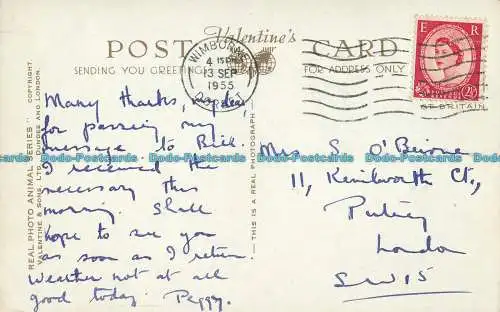 POST Valentine's CARD
SENDING YOU GREETINGS
FOR ADDRESS ONLY
WIMBORNE
4 15 PM
13 SEP
1955
DORSET
E R
2½
GT BRITAIN.
REAL PHOTO ANIMAL SERIES" COPYRIGHT.
VALENTINE & SONS, LTD., DUNDEE AND LONDON.
THIS IS A REAL PHOTOGRAPH
Many thanks, my dear,
for passing my
message to Bill.
I received the
necessary this
morning. Shall
hope to see you
as soon as I return.
Weather not at all
good today. Peggy.
Mrs S. O'Beirne
11, Kenilworth Ct.,
Putney
London
S.W.15
Dodo-Postcards Dodo-Postcards Dodo-Postcards Dodo-Postcards